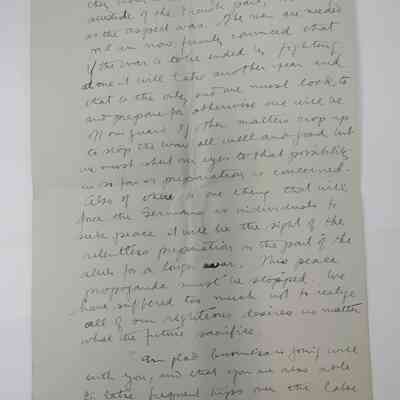 of the French
as the
am now firmly convinced that
if the war is to be ended by fighting
alone it will take another year and
that is the only end we must look to
and prepare for otherwise we will be
off our guard. If other matters crop up
to stop the war all well and good, but
we must shut our eyes to that possibility
in so far as preparation is concerned.
Also if there is one thing that will
face the Germans as individuals to
seek peace it will be the sight of the
relentless preparation on the part of the
allies for a longer war. This peace
propoganda must be stopped. We
have suffered too much not to realize
all of our righteous desires no matter
what the future sacrifice.
am glad business is going well
with you, and that you are also able
to take frequent trips over the Lake